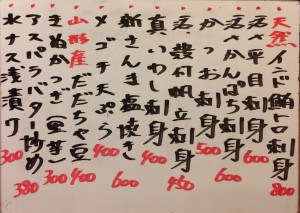 天然インド鮪トロ刺身 800
活〆平目刺身
活〆かんぱち刺身 600
かつお刺身 500
活殻付帆立刺身 450
真いわし刺身 400
新さんま塩焼き 600
メゴチ天ぷら
山形産だだちゃ豆 400
きぬかつぎ(里芋) 300
アスパラバター炒め 380
水ナス浅漬け 300